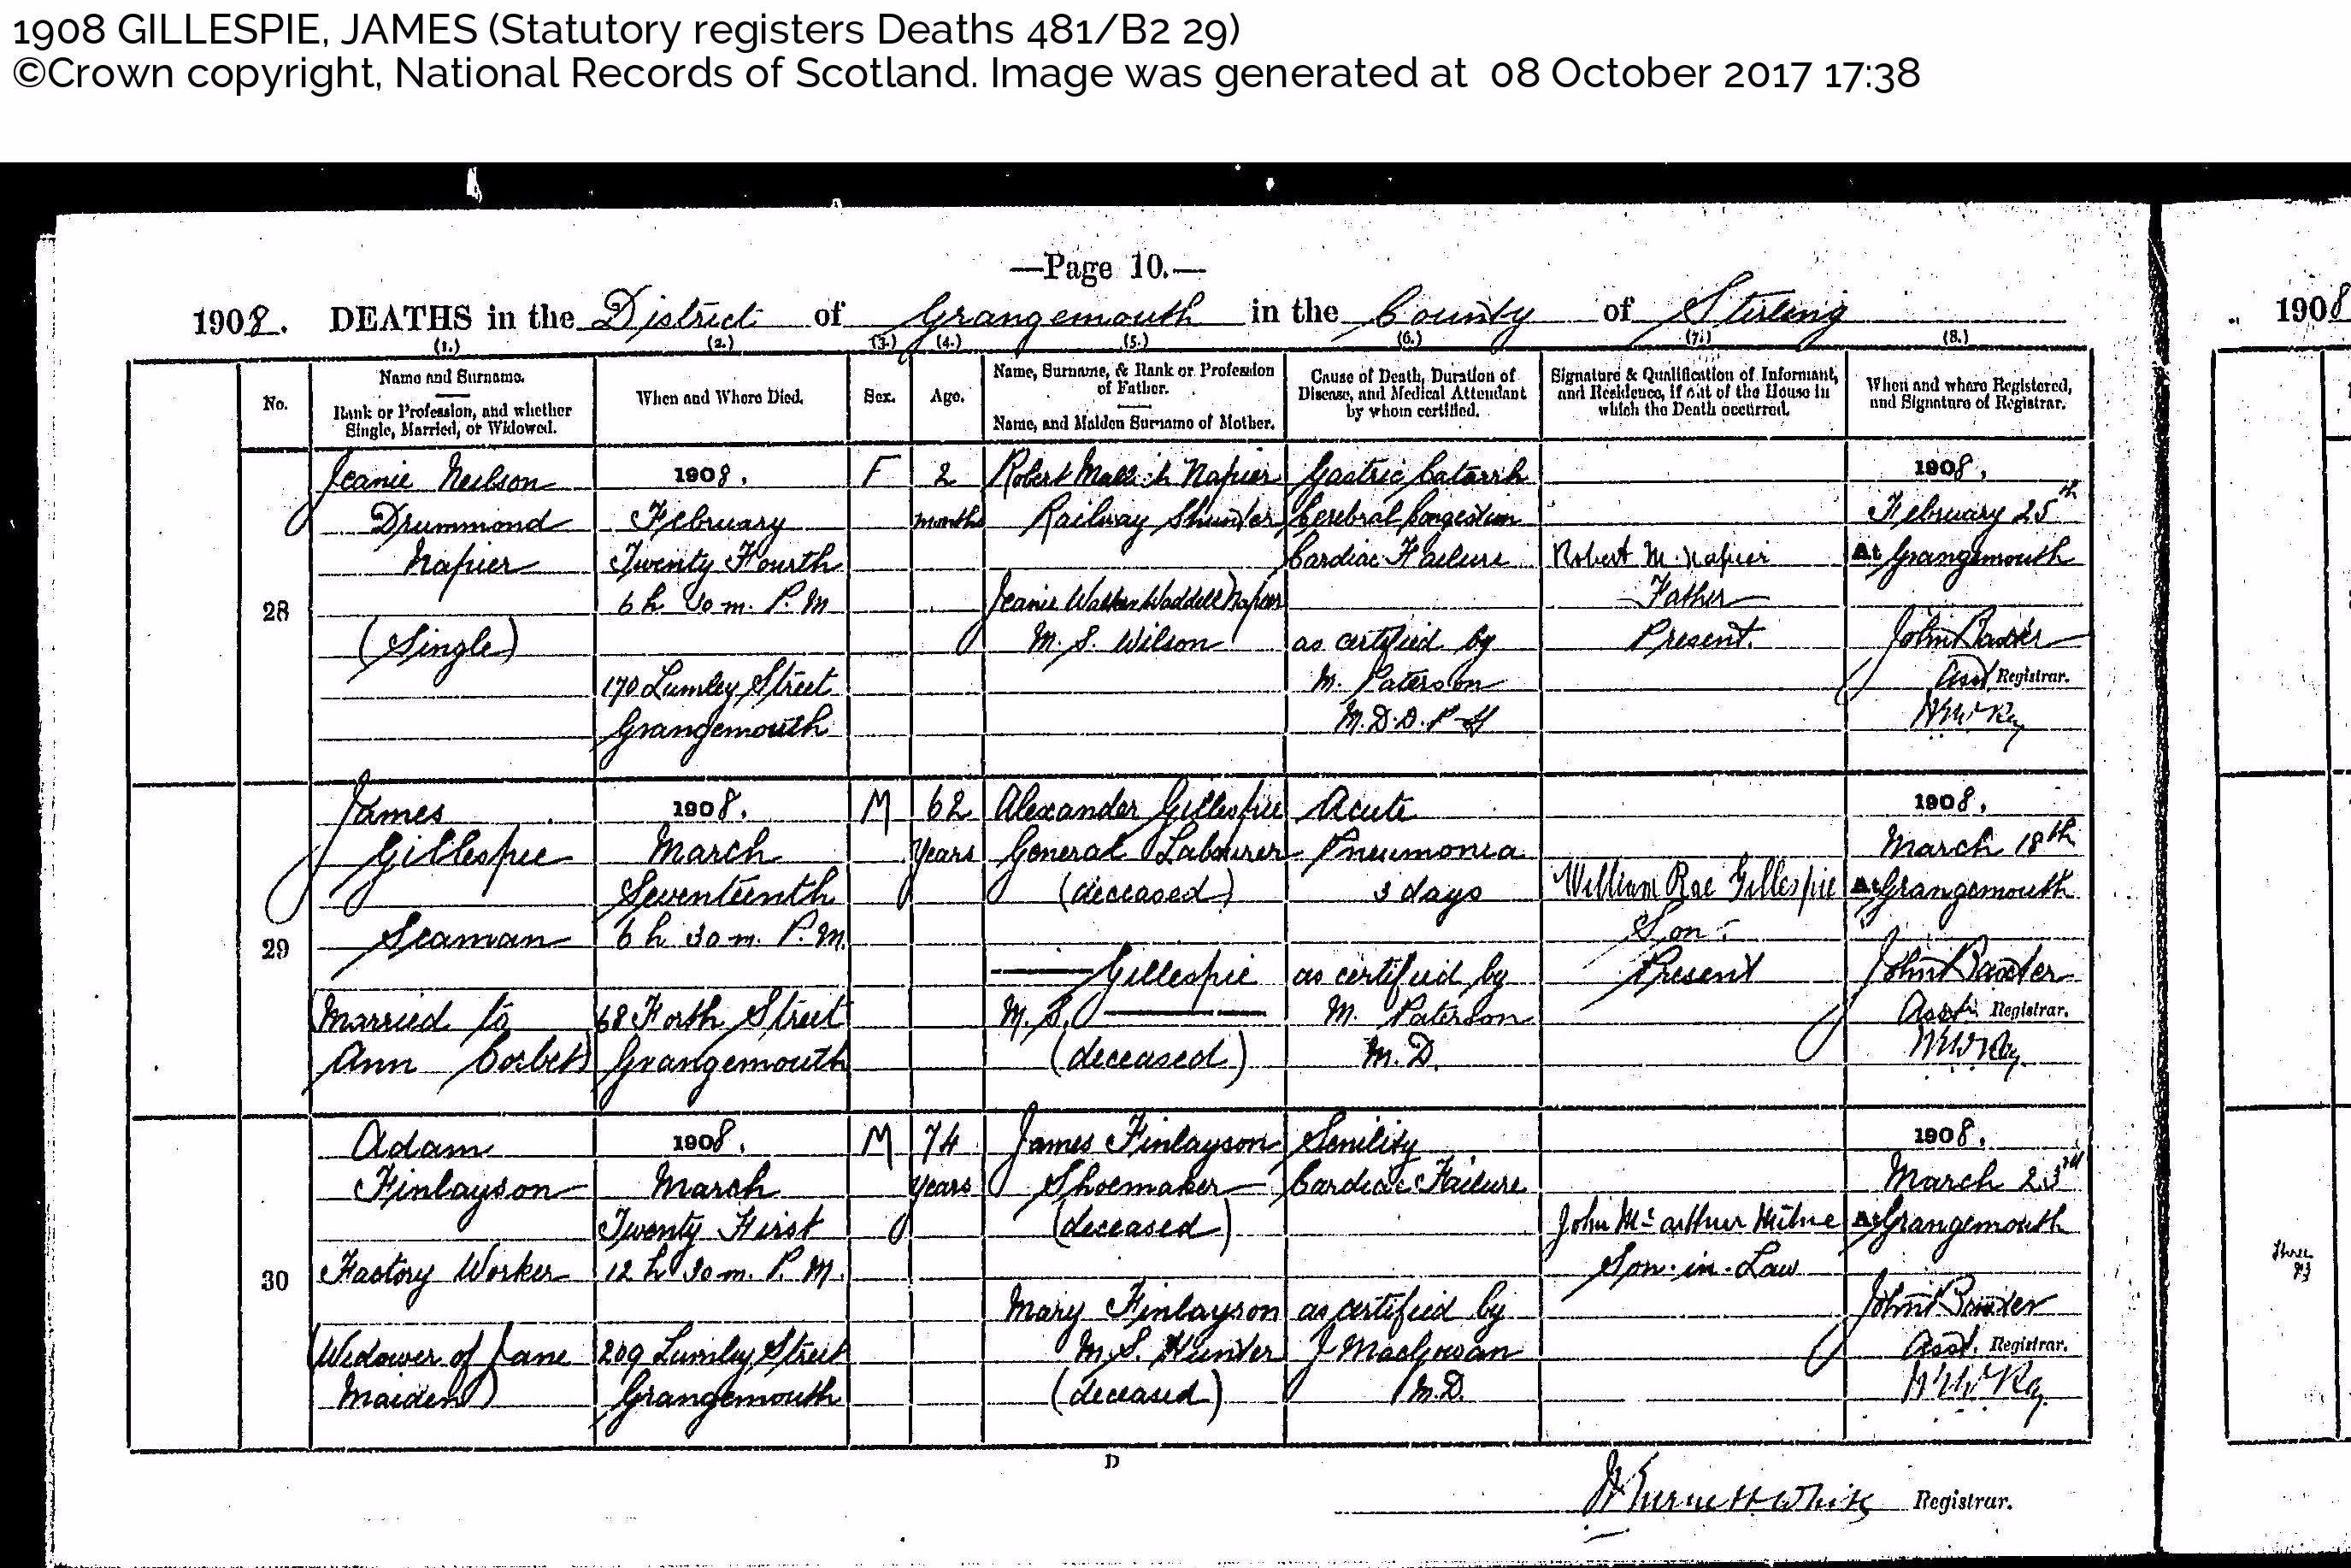 1908 GILLESPIE, JAMES (Statutory registers Deaths 481/B2 29)
©Crown copyright, National Records of Scotland. Image was generated at 08 October 2017 17:38
—Page 10.—
1908. DEATHS in the District of Grangemouth in the County of Stirling
1908
(1.) (2.) (3.) (4.) (5.) (6.) (7.) (8.)
No.
Name and Surname.
Rank or Profession, and whether
Single, Married, or Widowed.
When and Where Died.
Sex.
Age.
Name, Surname, & Rank or Profession
of Father.
Name, and Maiden Surname of Mother.
Cause of Death, Duration of
Disease, and Medical Attendant
by whom certified.
Signature & Qualification of Informant,
and Residence, if out of the House in
which the Death occurred.
When and where Registered,
and Signature of Registrar.
28
Jeanie Neilson
Drummond
Napier
(Single)
1908.
February
Twenty Fourth
6 h. 30 m. P. M
170 Lumley Street
Grangemouth
F
2
months
Robert Napier
Railway Shunter
Jeanie Walker Waddell Napier
M. S. Wilson
Gastric Catarrh
Cerebral Congestion
Cardiac Failure
as certified by
M. Paterson
M.D.D.P.H
Robert M. Napier
Father
Present.
1908,
February 25th
At Grangemouth
John Baxter
Asst Registrar.
29
James
Gillespie
Seaman
Married to
Ann Corbet)
1908.
March
Seventeenth
6 h. 30 m. P. M.
68 Forth Street
Grangemouth
M
62
Years
Alexander Gillespie
General Labourer
(deceased)
—— Gillespie
M. S. ——
(deceased)
Acute
Pneumonia
3 days
as certified by
M. Paterson
M. D.
William Rae Gillespie
Son
Present
1908,
March 18th
At Grangemouth
John Baxter
Asst. Registrar.
30
Adam
Finlayson
Factory Worker
(Widower of Jane
Maiden)
1908.
March
Twenty First
12 h 30 m. P. M.
209 Lumley Street
Grangemouth
M
74
years
James Finlayson
Shoemaker
(deceased)
Mary Finlayson
M. S. Hunter
(deceased)
Senility
Cardiac Failure
as certified by
J MacGowan
M.D.
John McArthur Milne
Son-in-Law
1908,
March 23rd
At Grangemouth
John Baxter
Asst. Registrar.
D
White Registrar.
Three